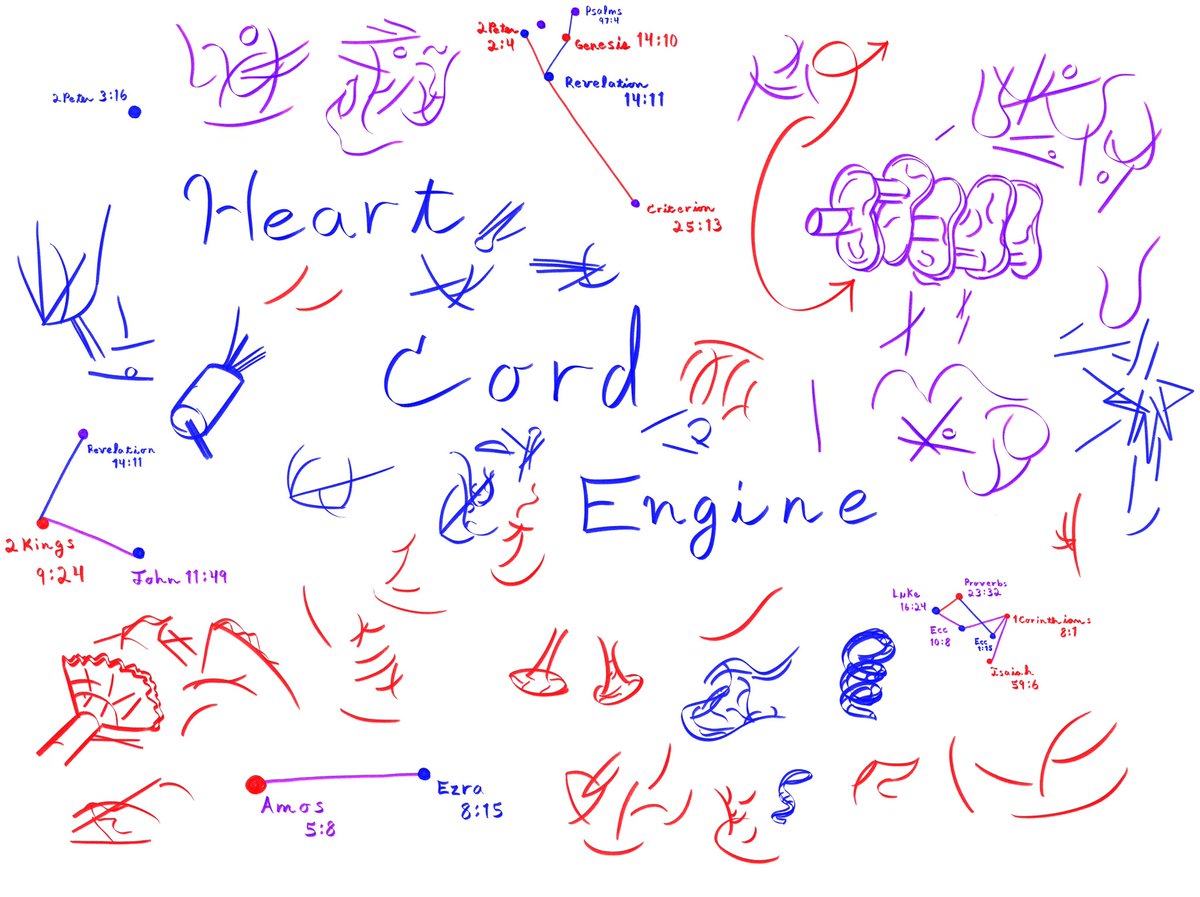 Psalms
97:4
2 Peter
2:4
Genesis 14:10
Revelation
14:11
2 Peter 3:16
Heart
Criterion
25:13
Cord
Revelation
14:11
Engine
2 Kings
9:24
John 11:49
Luke
16:24
Proverbs
23:32
1 Corinthians
8:1
Ecc
10:8
Ecc
1:15
Isaiah
59:6
Amos
5:8
Ezra
8:15